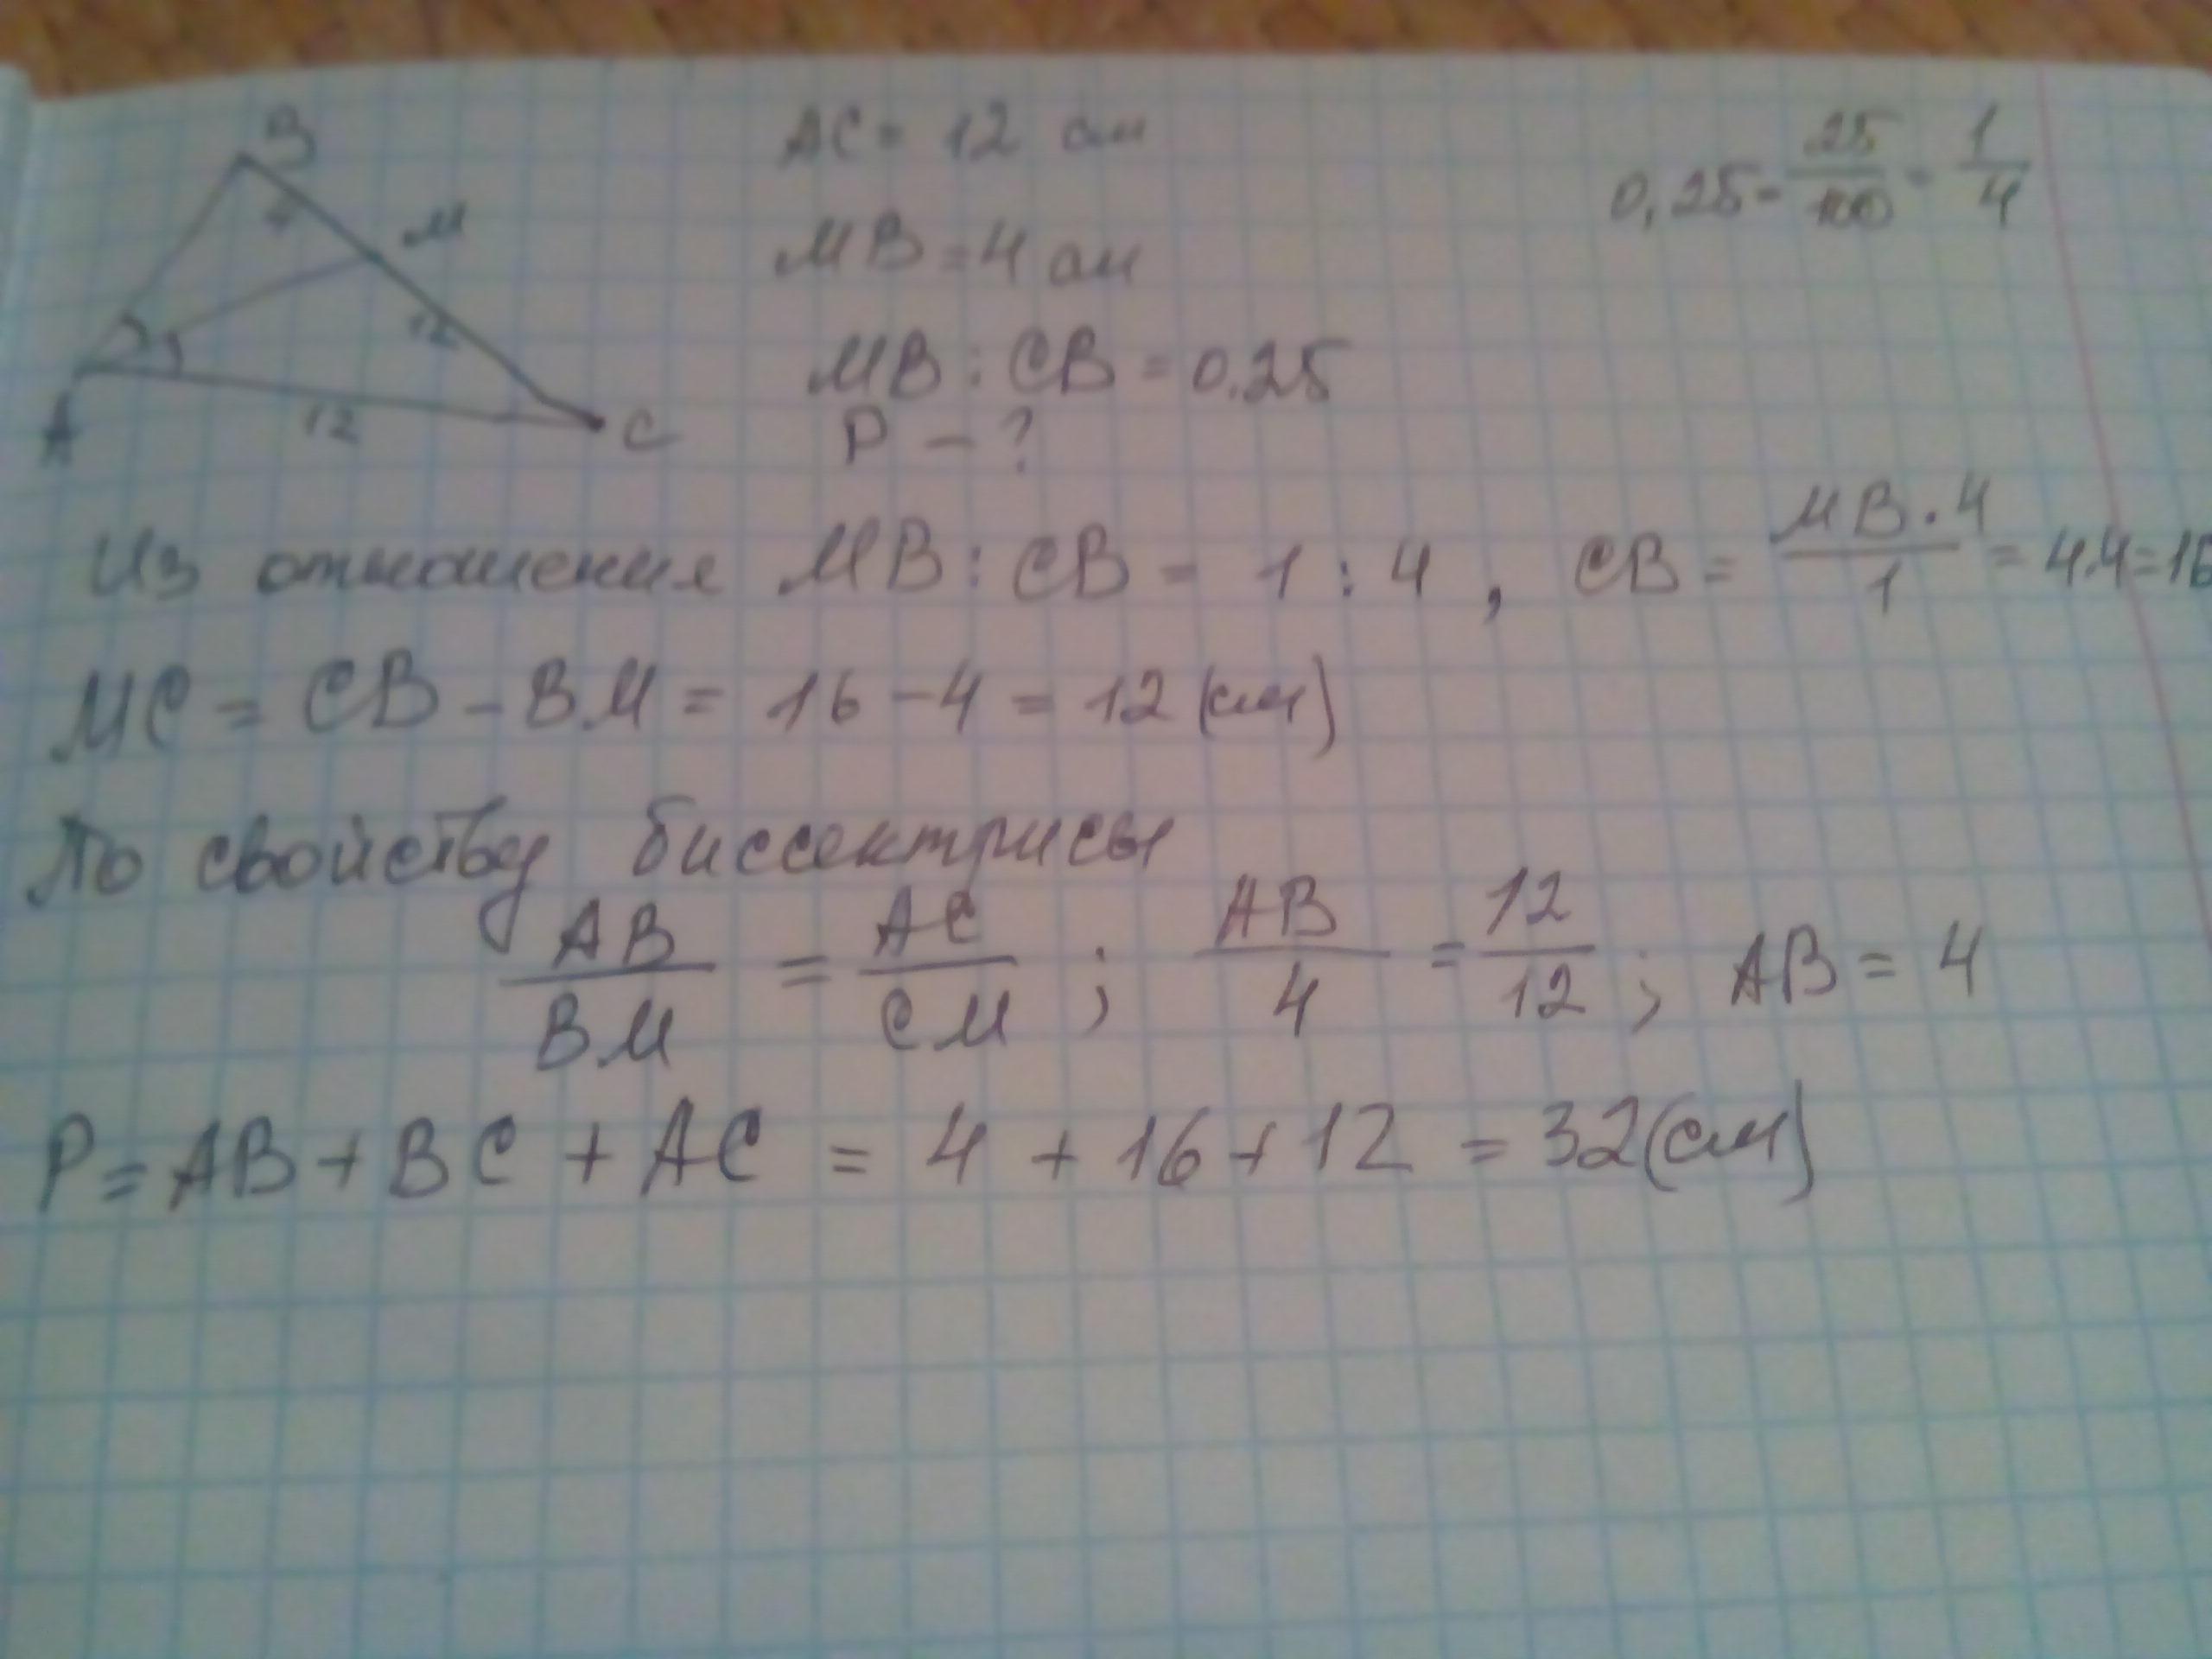 B
4
M
12
A
12
C
AC = 12 см
MB = 4 см
MB : CB = 0.25
P - ?
0,25 = 25/100 = 1/4
Из отношения MB : CB = 1 : 4 , CB = MB·4/1 = 4·4=16
MC = CB - BM = 16 - 4 = 12 (см)
По свойству биссектрисы
AB/BM = AC/CM ; AB/4 = 12/12 ; AB = 4
P = AB + BC + AC = 4 + 16 + 12 = 32 (см)